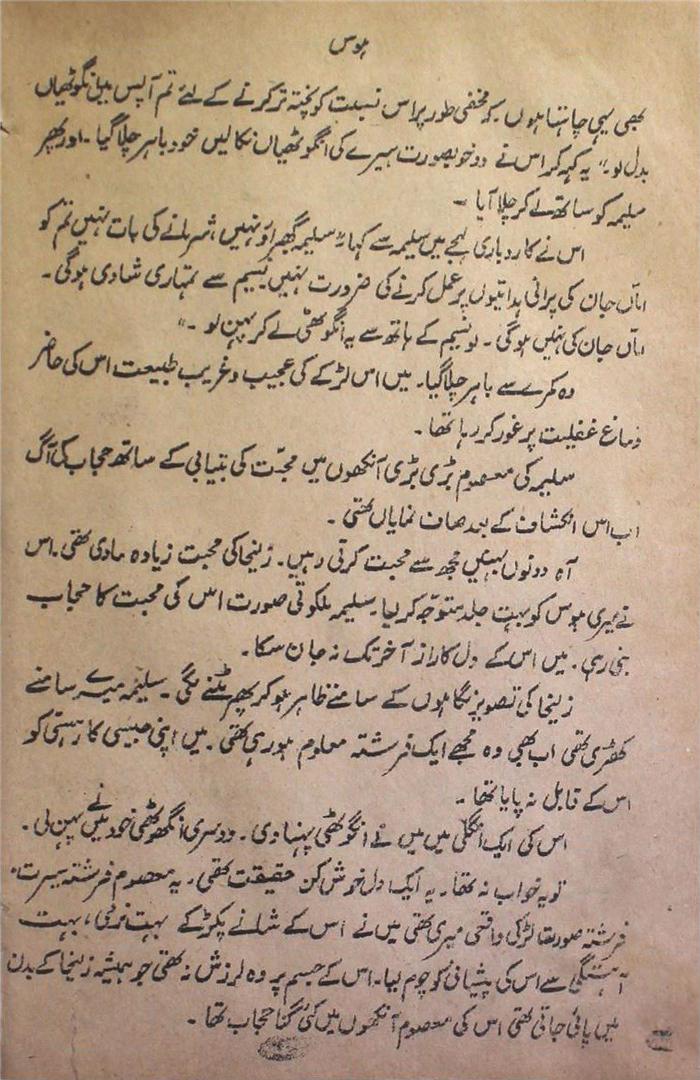 ہوس
بھی یہی چاہتا ہوں کہ مخفی طور پر اس نسبت کو پختہ تر کرنے کے لئے تم آپس میں انگوٹھیاں
بدل لو۔" یہ کہہ کر اس نے دو خوبصورت ہیرے کی انگوٹھیاں نکالیں خود باہر چلا گیا۔ اور پھر
سلیمہ کو ساتھ لے کر چلا آیا۔
اس نے کاروباری لہجے میں سلیمہ سے کہا "سلیمہ گھبراؤ نہیں، شرمانے کی بات نہیں تم کو
اماّں جان کی پرانی ہدایتوں پر عمل کرنے کی ضرورت نہیں نسیم سے تمہاری شادی ہوگی۔
اماّں جان کی نہیں ہوگی۔ لو نسیم کے ہاتھ سے یہ انگوٹھی لے کر پہن لو۔"
وہ کمرے سے باہر چلا گیا۔ میں اس لڑکے کی عجیب و غریب طبیعت اس کی حاضر
دماغ غفلیت پر غور کر رہا تھا۔
سلیمہ کی معصوم بڑی بڑی آنکھوں میں محبّت کی بیتابی کے ساتھ حجاب کی آگ
اب اس انکشاف کے بعد صاف نمایاں تھی۔
آہ دونوں بہنیں مجھ سے محبت کرتی رہیں۔ زلیخا کی محبت زیادہ مادی تھی۔ اس
نے میری ہوس کو بہت جلد متوجّہ کر لیا۔ سلیمہ ملکوتی صورت اس کی محبت کا حجاب
بنی رہی۔ میں اس کے دل کا راز آخر تک نہ جان سکا۔
زلیخا کی تصویر نگاہوں کے سامنے ظاہر ہو کر پھر مٹنے لگی۔ سلیمہ میرے سامنے
کھڑی تھی اب بھی وہ مجھے ایک فرشتہ معلوم ہو رہی تھی۔ میں اپنی جیسی کار ہستی کو
اس کے قابل نہ پایا تھا۔
اس کی ایک انگلی میں میں نے انگوٹھی پہنا دی۔ دوسری انگھوٹھی خود میں نے پہن لی۔
تو یہ خواب نہ تھا۔ یہ ایک دل خوش کن حقیقت تھی۔ یہ معصوم فرشتہ سیرت،
فرشتہ صورت لڑکی واقعی میری تھی میں نے اس کے شانے پکڑ کے بہت نرمی، بہت
آہستگی سے اس کی پیشانی کو چوم لیا۔ اس کے جسم پر وہ لرزش نہ تھی جو ہمیشہ زلیخا کے بدن
میں پائی جاتی تھی اس کی معصوم آنکھوں میں کئی گنا حجاب تھا۔